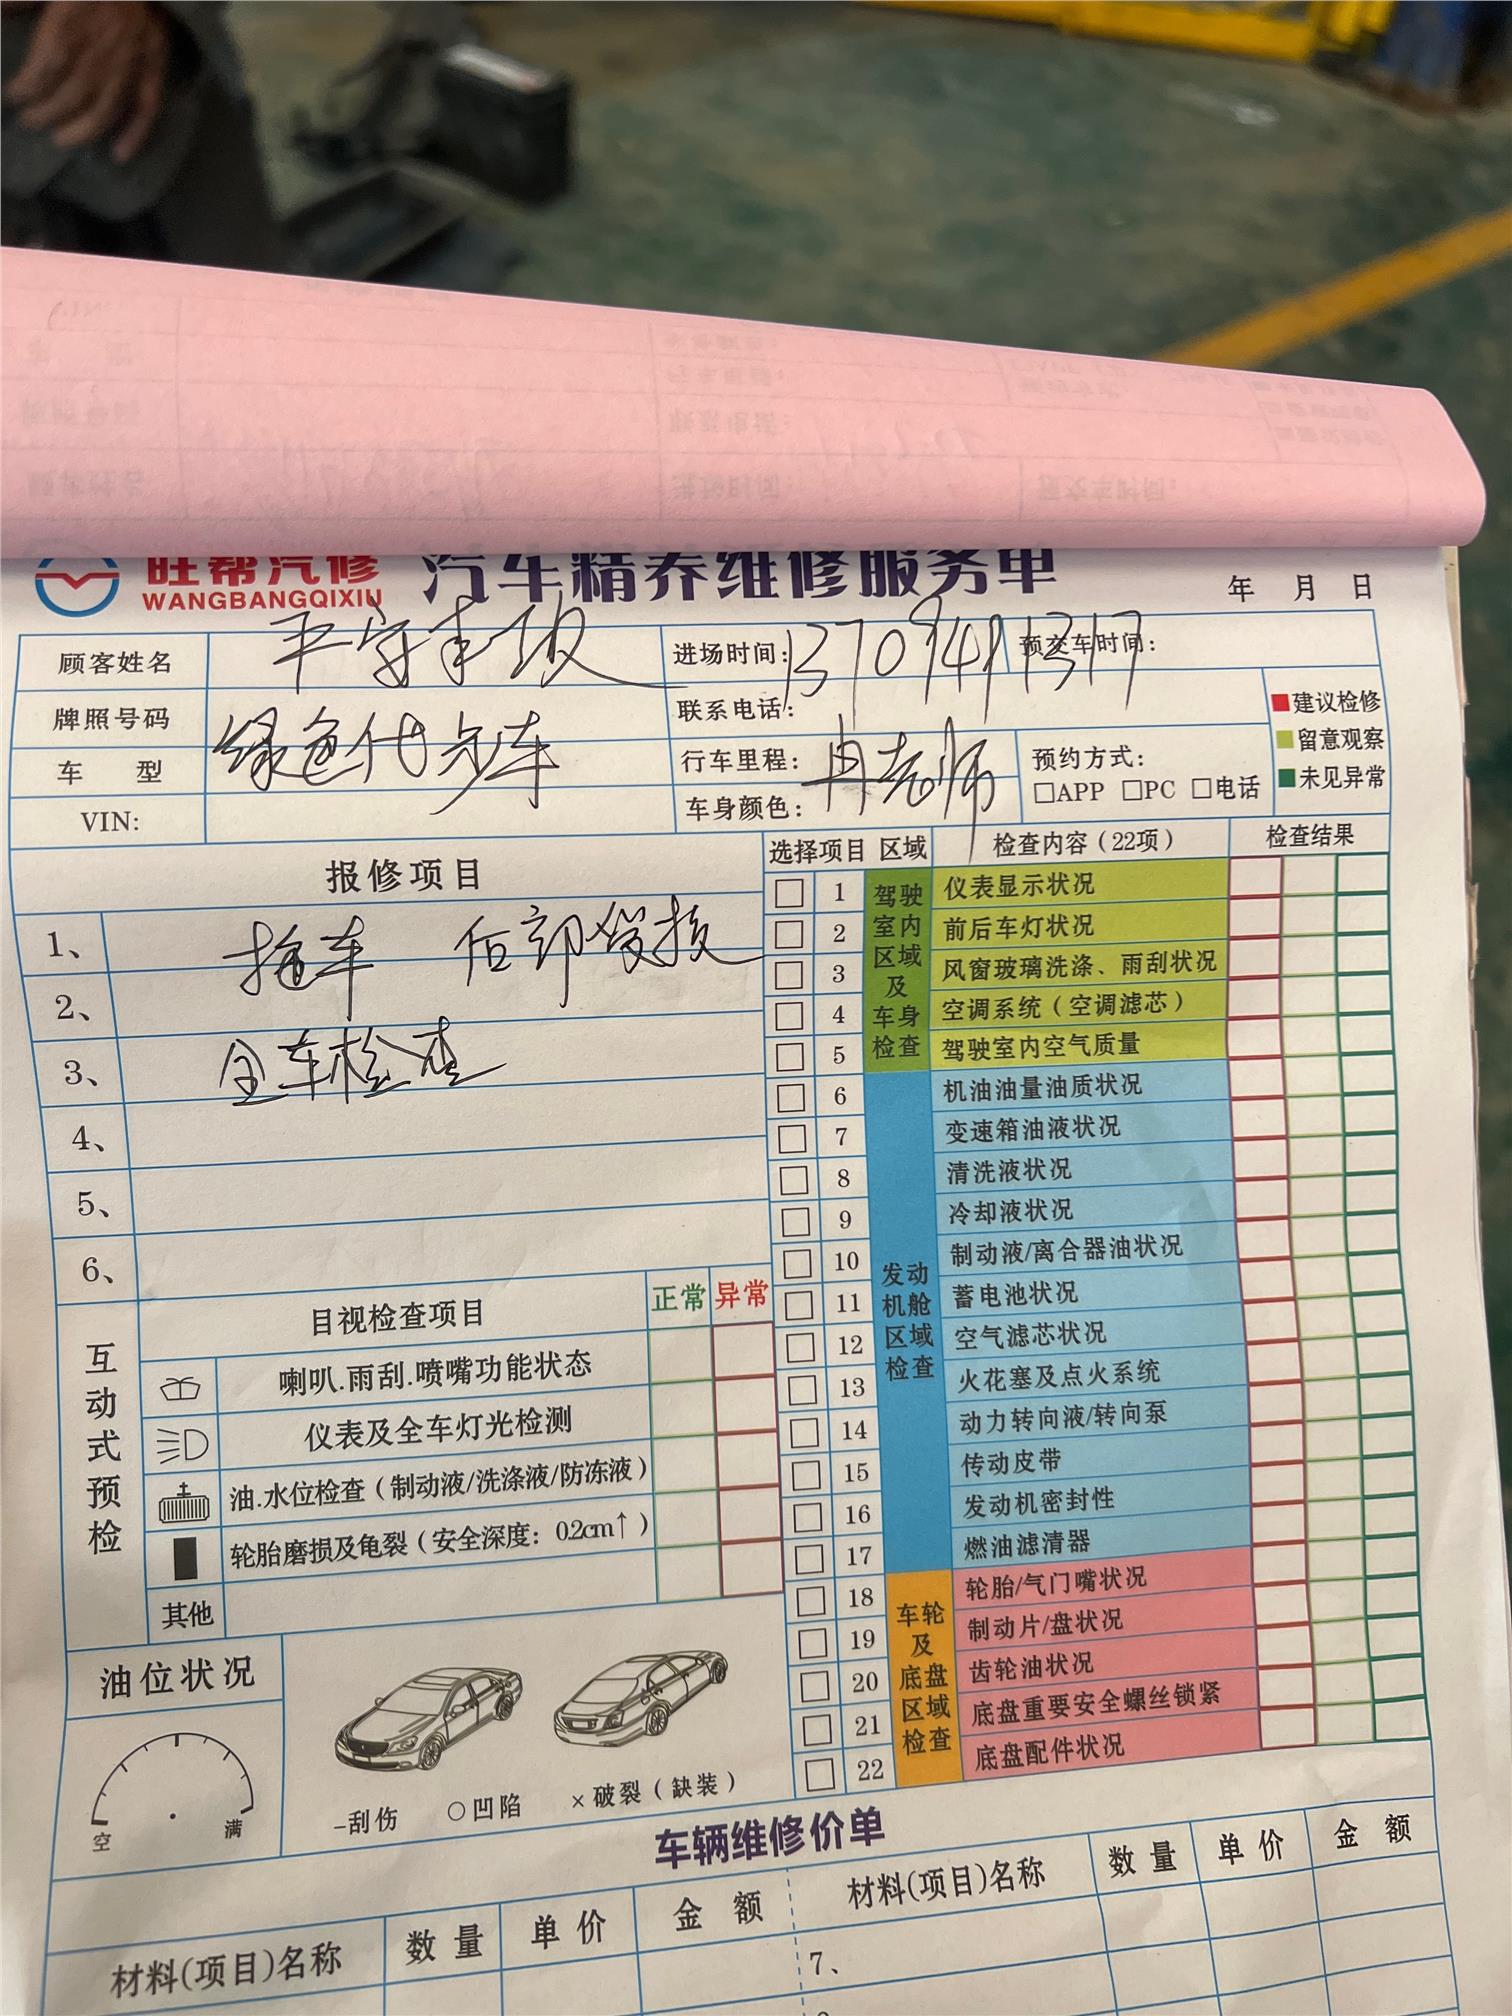 旺帮汽修 汽车精养维修服务单
WANGBANGQIXIU
年 月 日
顾客姓名 平安车险 进场时间: 13709491317 预交车时间:
牌照号码 联系电话:
绿色代步车
车 型 行车里程: 冉老师 预约方式:
□APP □PC □电话
VIN: 车身颜色:
建议检修
留意观察
未见异常
报修项目
1、 拖车 后部受损
2、
3、 全车检查
4、
5、
6、
互动式预检
目视检查项目 正常 异常
喇叭.雨刮.喷嘴功能状态
仪表及全车灯光检测
油.水位检查（制动液/洗涤液/防冻液）
轮胎磨损及龟裂（安全深度：0.2cm↑）
其他
油位状况
空 满
-刮伤 ○凹陷 ×破裂（缺装）
选择项目 区域 检查内容（22项） 检查结果
驾驶室内区域及车身检查
1 仪表显示状况
2 前后车灯状况
3 风窗玻璃洗涤、雨刮状况
4 空调系统（空调滤芯）
5 驾驶室内空气质量
发动机舱区域检查
6 机油油量油质状况
7 变速箱油液状况
8 清洗液状况
9 冷却液状况
10 制动液/离合器油状况
11 蓄电池状况
12 空气滤芯状况
13 火花塞及点火系统
14 动力转向液/转向泵
15 传动皮带
16 发动机密封性
17 燃油滤清器
车轮及底盘区域检查
18 轮胎/气门嘴状况
19 制动片/盘状况
20 齿轮油状况
21 底盘重要安全螺丝锁紧
22 底盘配件状况
车辆维修价单
材料(项目)名称 数量 单价 金额 材料(项目)名称 数量 单价 金额
7、